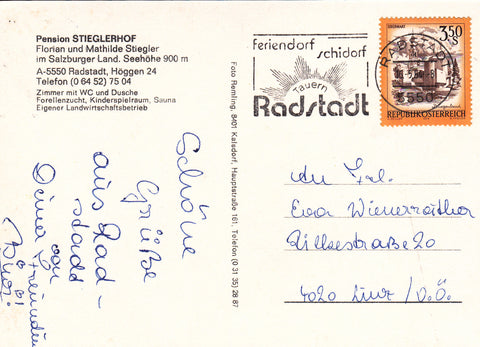 Pension STIEGLERHOF
Florian und Mathilde Stiegler
im Salzburger Land. Seehöhe 900 m
A-5550 Radstadt, Höggen 24
Telefon (0 64 52) 75 04
Zimmer mit WC und Dusche
Forellenzucht, Kinderspielraum, Sauna
Eigener Landwirtschaftsbetrieb
Schöne
Grüße
aus Rad-
stadt
Deine
Freundin
Foto Remling, 8401 Kalsdorf, Hauptstraße 161, Telefon (0 31 35) 28 87
feriendorf
schidorf
Tauern
Radstadt
RADSTADT
5550
3.50
S
REPUBLIK ÖSTERREICH
An Frl.
Eva Wienerroither
20
4020 Linz / O.Ö.